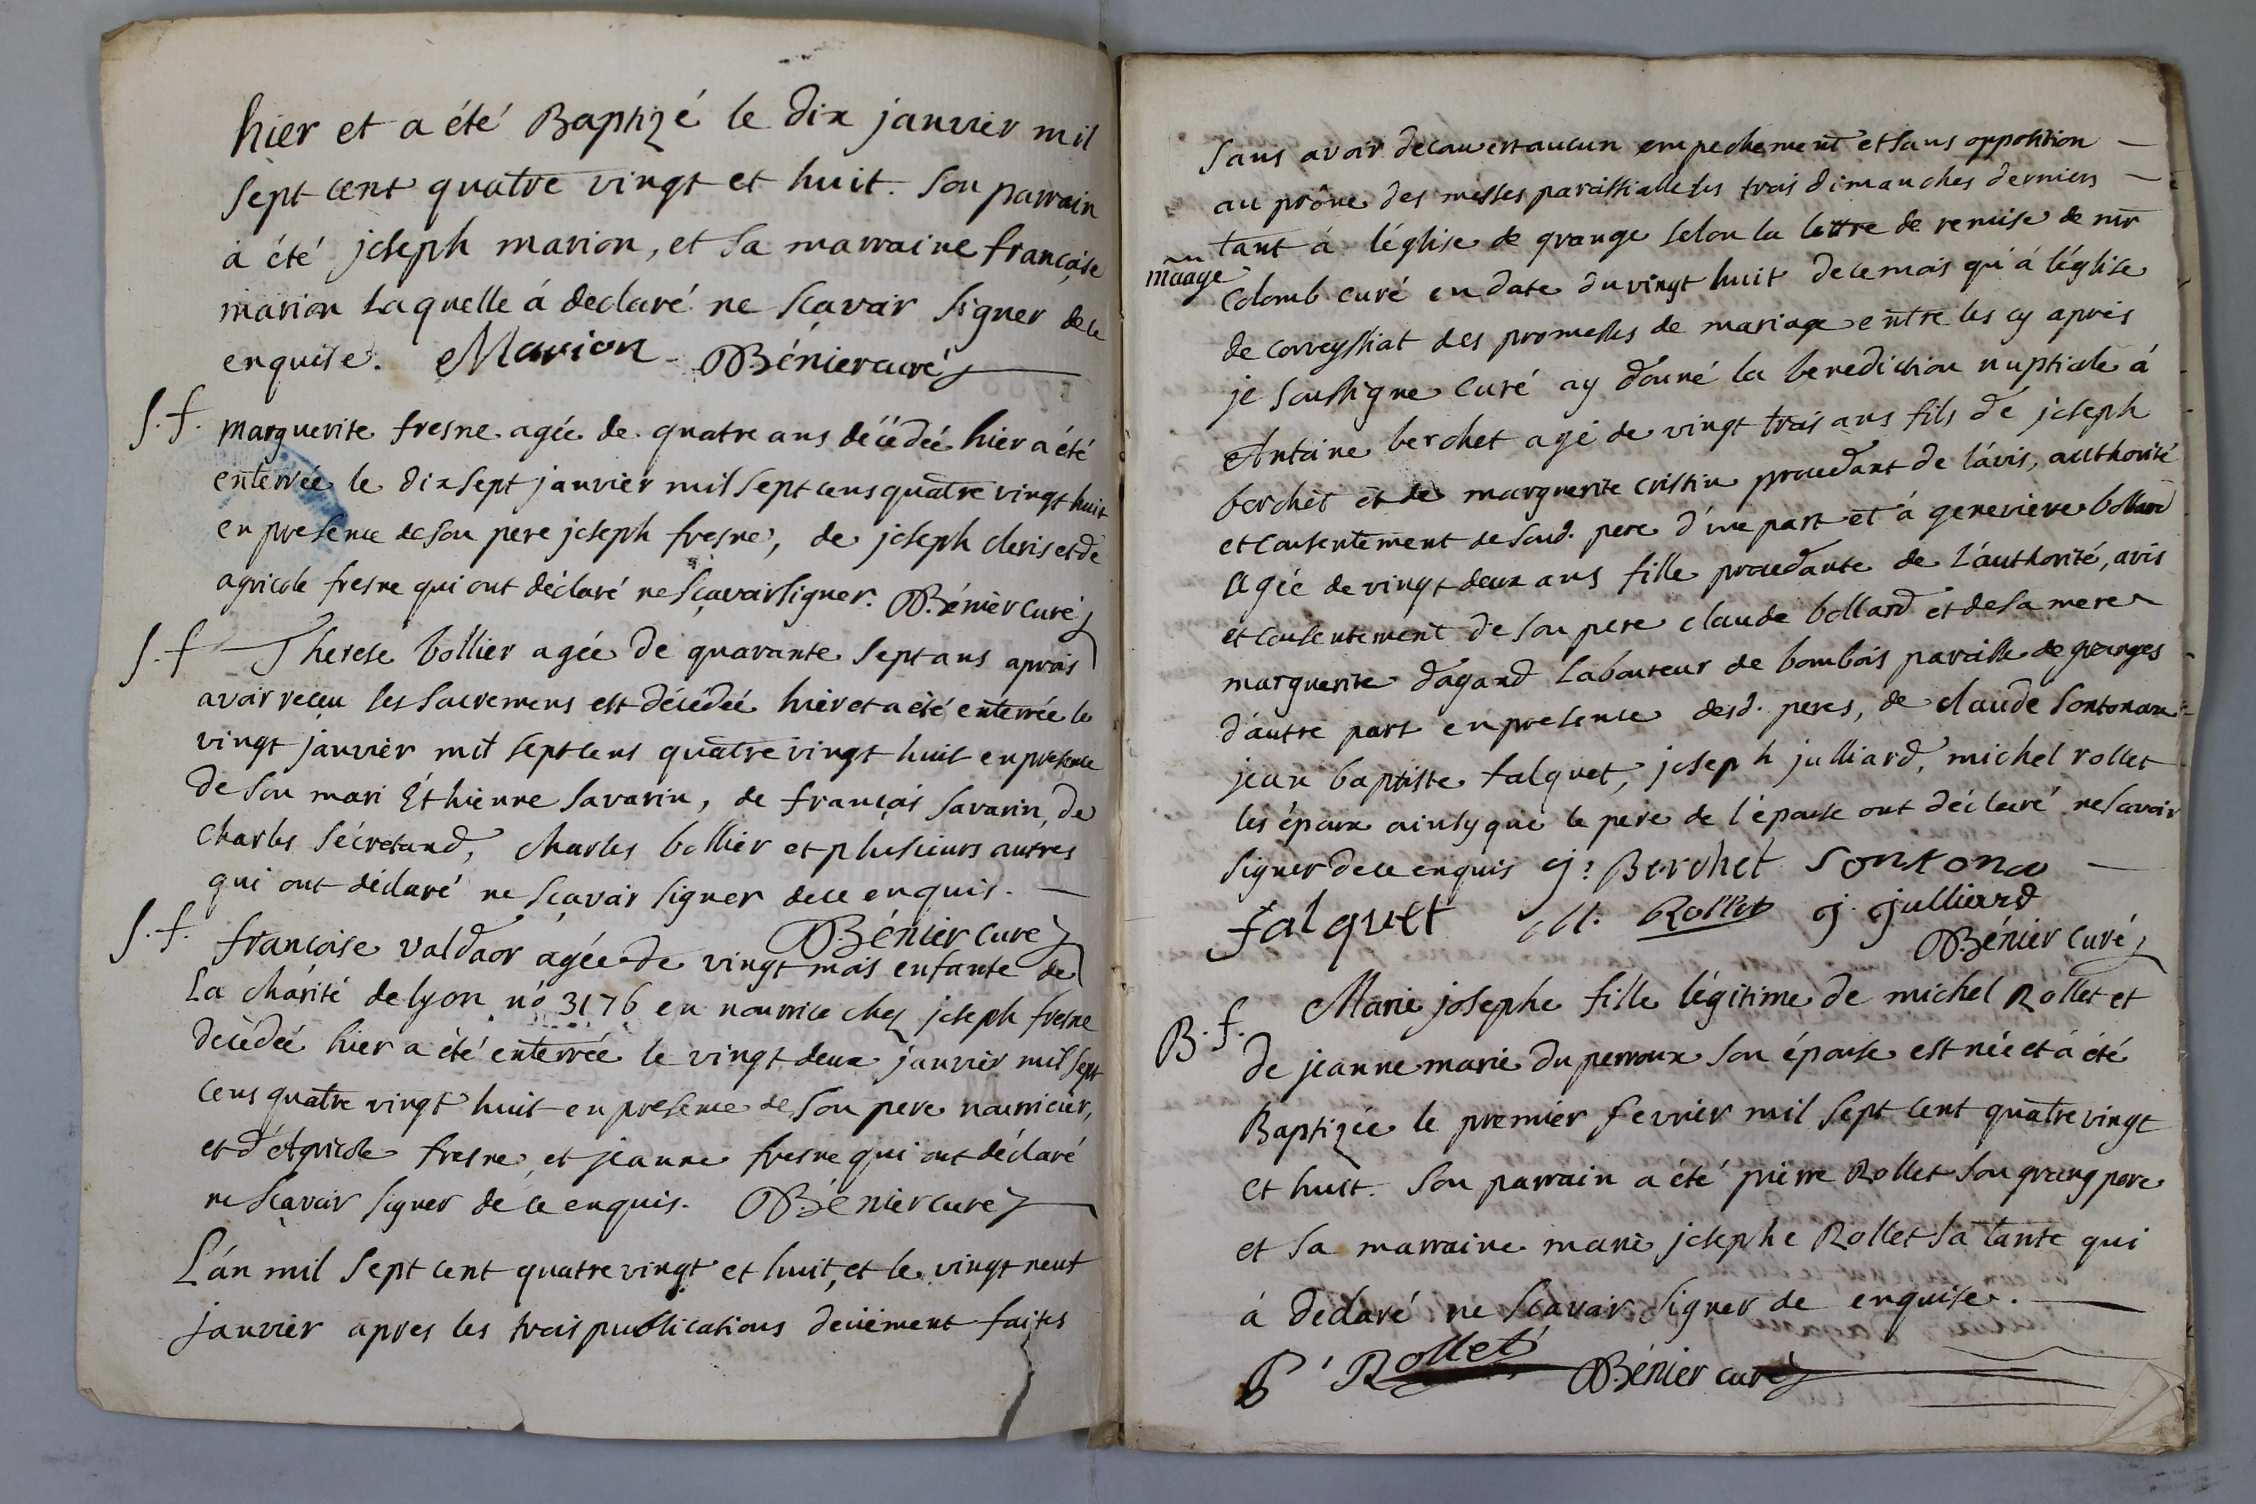 hier et a été Baptizé le dix janvier mil
sept cent quatre vingt et huit. son parrain
à été joseph marion, et sa marraine françoise
marion laquelle á declaré ne sçavoir signer de ce
enquise. Marion Bénier curé
S. f. marguerite fresne agée de quatre ans décédée hier a été
enterrée le dix sept janvier mil sept cens quatre vingt huit
en presence de son pere joseph fresne, de joseph cleris et de
agricole fresne qui ont déclaré ne sçavoir signer. Bénier curé
S. f Therese bollier agée de quarante sept ans après
avoir reçeu les sacremens est décédée hier et a été enterrée le
vingt janvier mil sept cens quatre vingt huit en presence
de son mari Éthienne savarin, de françois savarin, de
charles sécretand, charles bollier et plusieurs autres
qui ont déclaré ne sçavoir signer de ce enquis.
Bénier curé
S. f. françoise valdaor agée de vingt mois enfante de
la charité de lyon n° 3176 en nourrice chez joseph fresne
décédée hier a été enterrée le vingt deux janvier mil sept
cens quatre vingt huit en presence de son pere nourricier,
et d'Agricole fresne, et jeanne fresne qui ont déclaré
ne sçavoir signer de ce enquis. Bénier curé
L'án mil sept cent quatre vingt et huit, et le vingt neuf
janvier apres les trois publications deüement faites
sans avoir decouvert aucun empechement et sans opposition
au prône des messes paroissialle les trois dimanches derniers
tant á léglise de grange selon la lettre de remise de mr
maage
Colomb curé en date du vingt huit de ce mois qu'á léglise
de corveyssiat des promesses de mariage entre les cy après
je soussigne curé ay donné la benediction nuptiale á
Antoine berchet agé de vingt trois ans fils de joseph
berchet et de marguerite cristin procedant de l'ávis, authorité
et consentement de sond. pere d'une part et á genevieve bollard
agée de vingt deux ans fille procedante de l'authorité, avis
et consentement de son pere claude bollard et de sa mere
marguerite dagand laboureur de bombois paroisse de granges
d'autre part en presence desd. peres, de claude sontonax
jean baptiste falquet, joseph julliard, michel rollet
les époux ainsy que le pere de l'épouse ont déclaré ne savoir
signer de ce enquis j: Berchet Sontona
falquet M. Rollet j. julliard
Bénier curé
B. f. Marie josephe fille légitime de michel Rollet et
de jeanne marie du perroux son épouse est née et á été
Baptizée le premier fevrier mil sept cent quatre vingt
et huit. son parrain a été pierre Rollet son grang pere
et sa marraine marie josephe Rollet sa tante qui
á déclaré ne sçavoir signer de enquise.
P Rollet Bénier curé